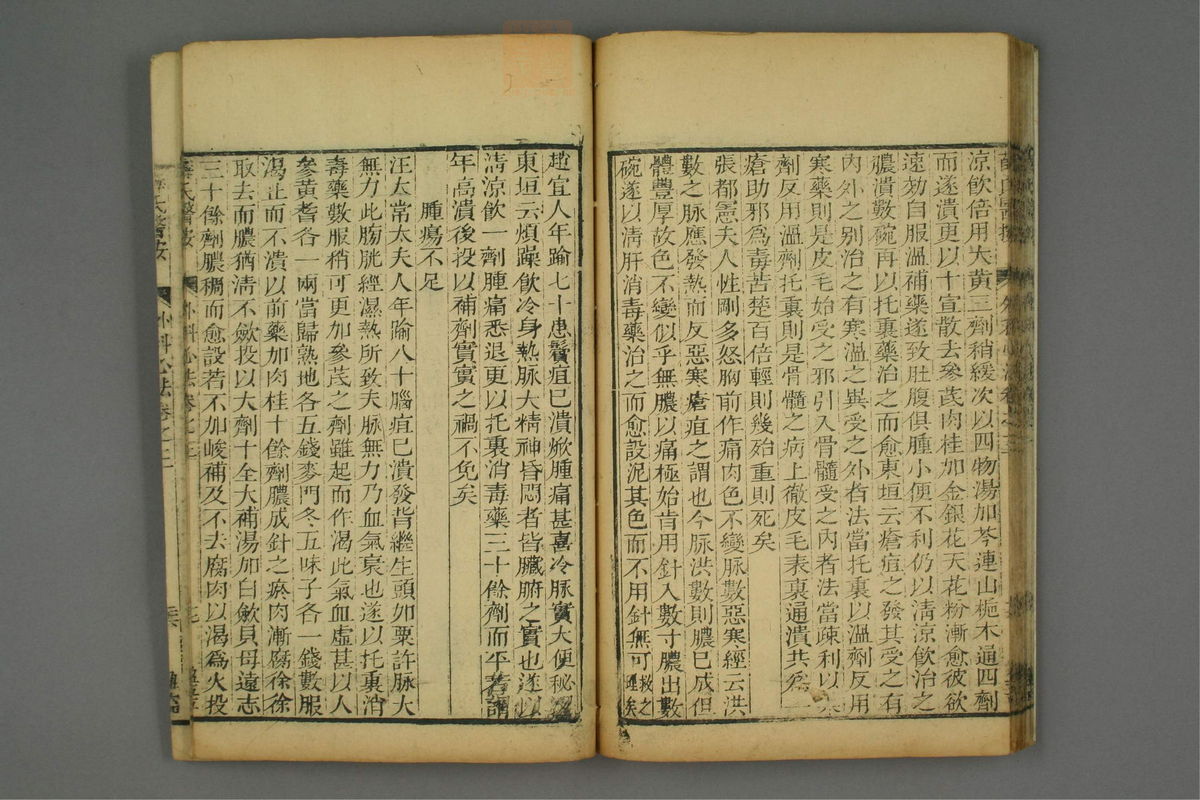 涼飲倍用大黄三劑稍緩次以四物湯加芩連山梔木通四劑
而遂潰更以十宣散去參芪肉桂加金銀花天花粉漸愈彼欲
速効自服溫補藥遂致肚腹俱腫小便不利仍以清涼飲治之
膿潰數碗再以托裏藥治之而愈東垣云瘡疽之發其受之有
内外之别治之有寒溫之異受之外者法當托裏以溫劑反用
寒藥則是皮毛始受之邪引入骨髓受之内者法當疎利以
劑反用溫劑托裏則是骨髓之病上徹皮毛表裏通潰共爲一
瘡助邪爲毒苦楚百倍輕則幾殆重則死矣
張都憲夫人性剛多怒胸前作痛肉色不變脉數惡寒經云洪
數之脉應發熱而反惡寒瘡疽之謂也今脉洪數則膿已成但
體豐厚故色不變似乎無膿以痛極始肯用針入數寸膿出數
碗遂以清肝消毒藥治之而愈設泥其色而不用針無可救之理矣
趙宜人年踰七十患鬢疽已潰焮腫痛甚喜冷脉實大便秘澁
東垣云煩躁飲冷身熱脉大精神昏悶者皆臟腑之實也遂以
清涼飲一劑腫痛悉退更以托裏消毒藥三十餘劑而平若謂
年高潰後投以補劑實實之禍不免矣
腫瘍不足
汪太常太夫人年踰八十腦疽已潰發背繼生頭如粟許脉大
無力此膀胱經濕熱所致夫脉無力乃血氣衰也遂以托裏消
毒藥數服稍可更加參芪之劑雖起而作渴此氣血虛甚以人
參黄耆各一兩當歸熟地各五錢麥門冬五味子各一錢數服
渴止而不潰以前藥加肉桂十餘劑膿成針之瘀肉漸腐徐徐
取去而膿猶清不歛投以大劑十全大補湯加白歛貝母遠志
三十餘劑膿稠而愈設若不加峻補及不去腐肉以渴爲火投
薛氏醫按
外科心法卷之三